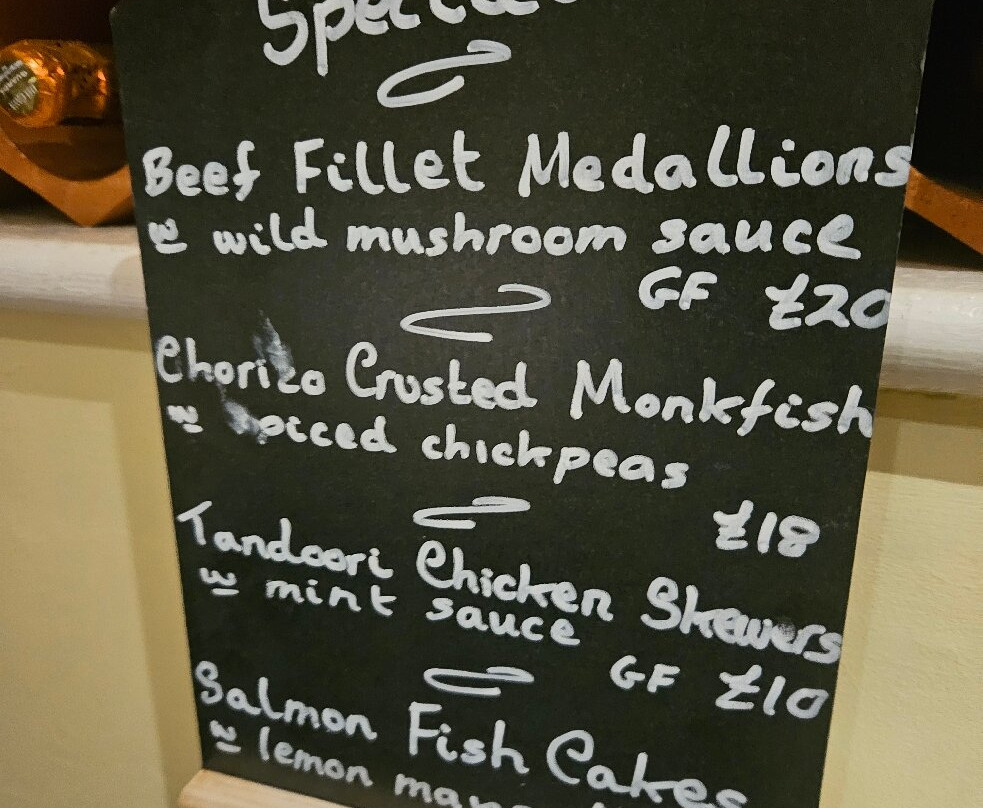 Beef Fillet Medallions
w wild mushroom sauce
GF £20
Chorizo Crusted Monkfish
w spiced chickpeas
£18
Tandoori Chicken Skewers
w mint sauce
GF £10
Salmon Fish Cakes
w lemon